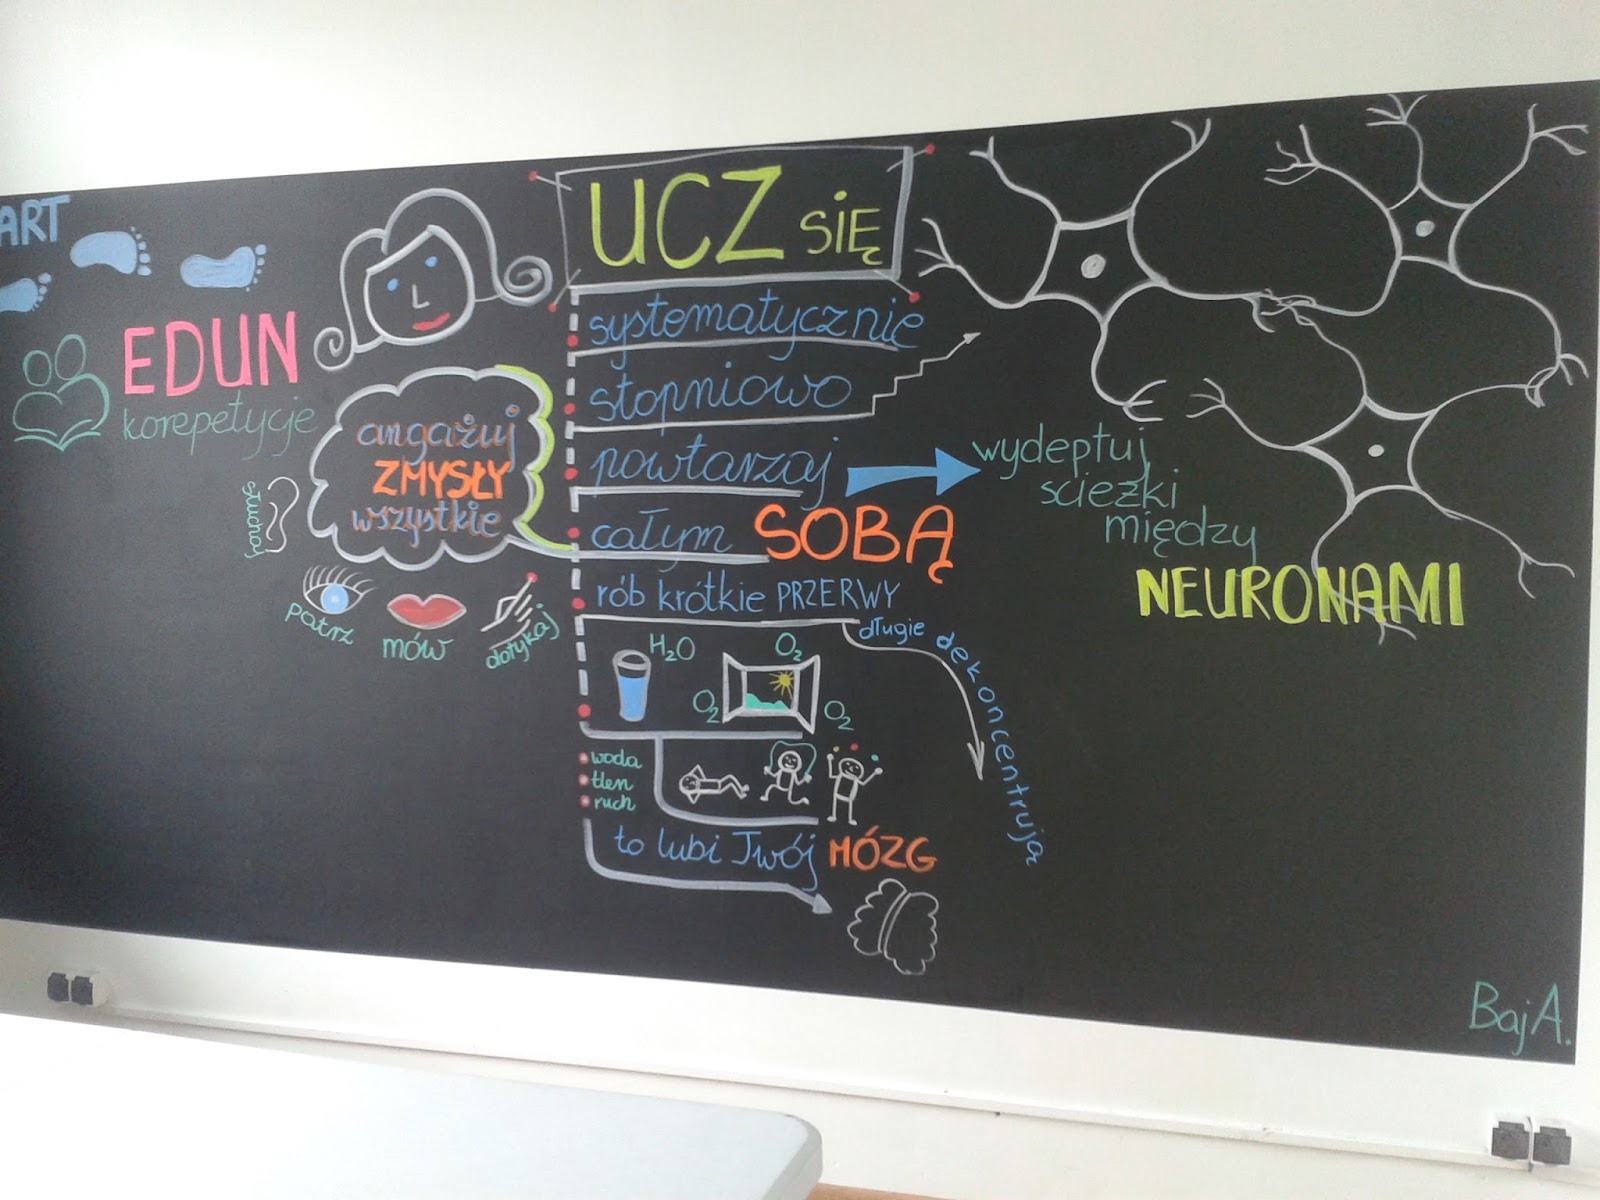 ART
EDUN
korepetycje
UCZ SIĘ
systematycznie
stopniowo
powtarzaj
całym SOBĄ
rób krótkie PRZERWY
angażuj
ZMYSŁY
wszystkie
słuchaj
patrz
mów
dotykaj
wydeptuj
scieżki
między
NEURONAMI
długie dekoncentrują
H₂O
O₂
O₂
O₂
woda
tlen
ruch
to lubi Twój MÓZG
BajA.